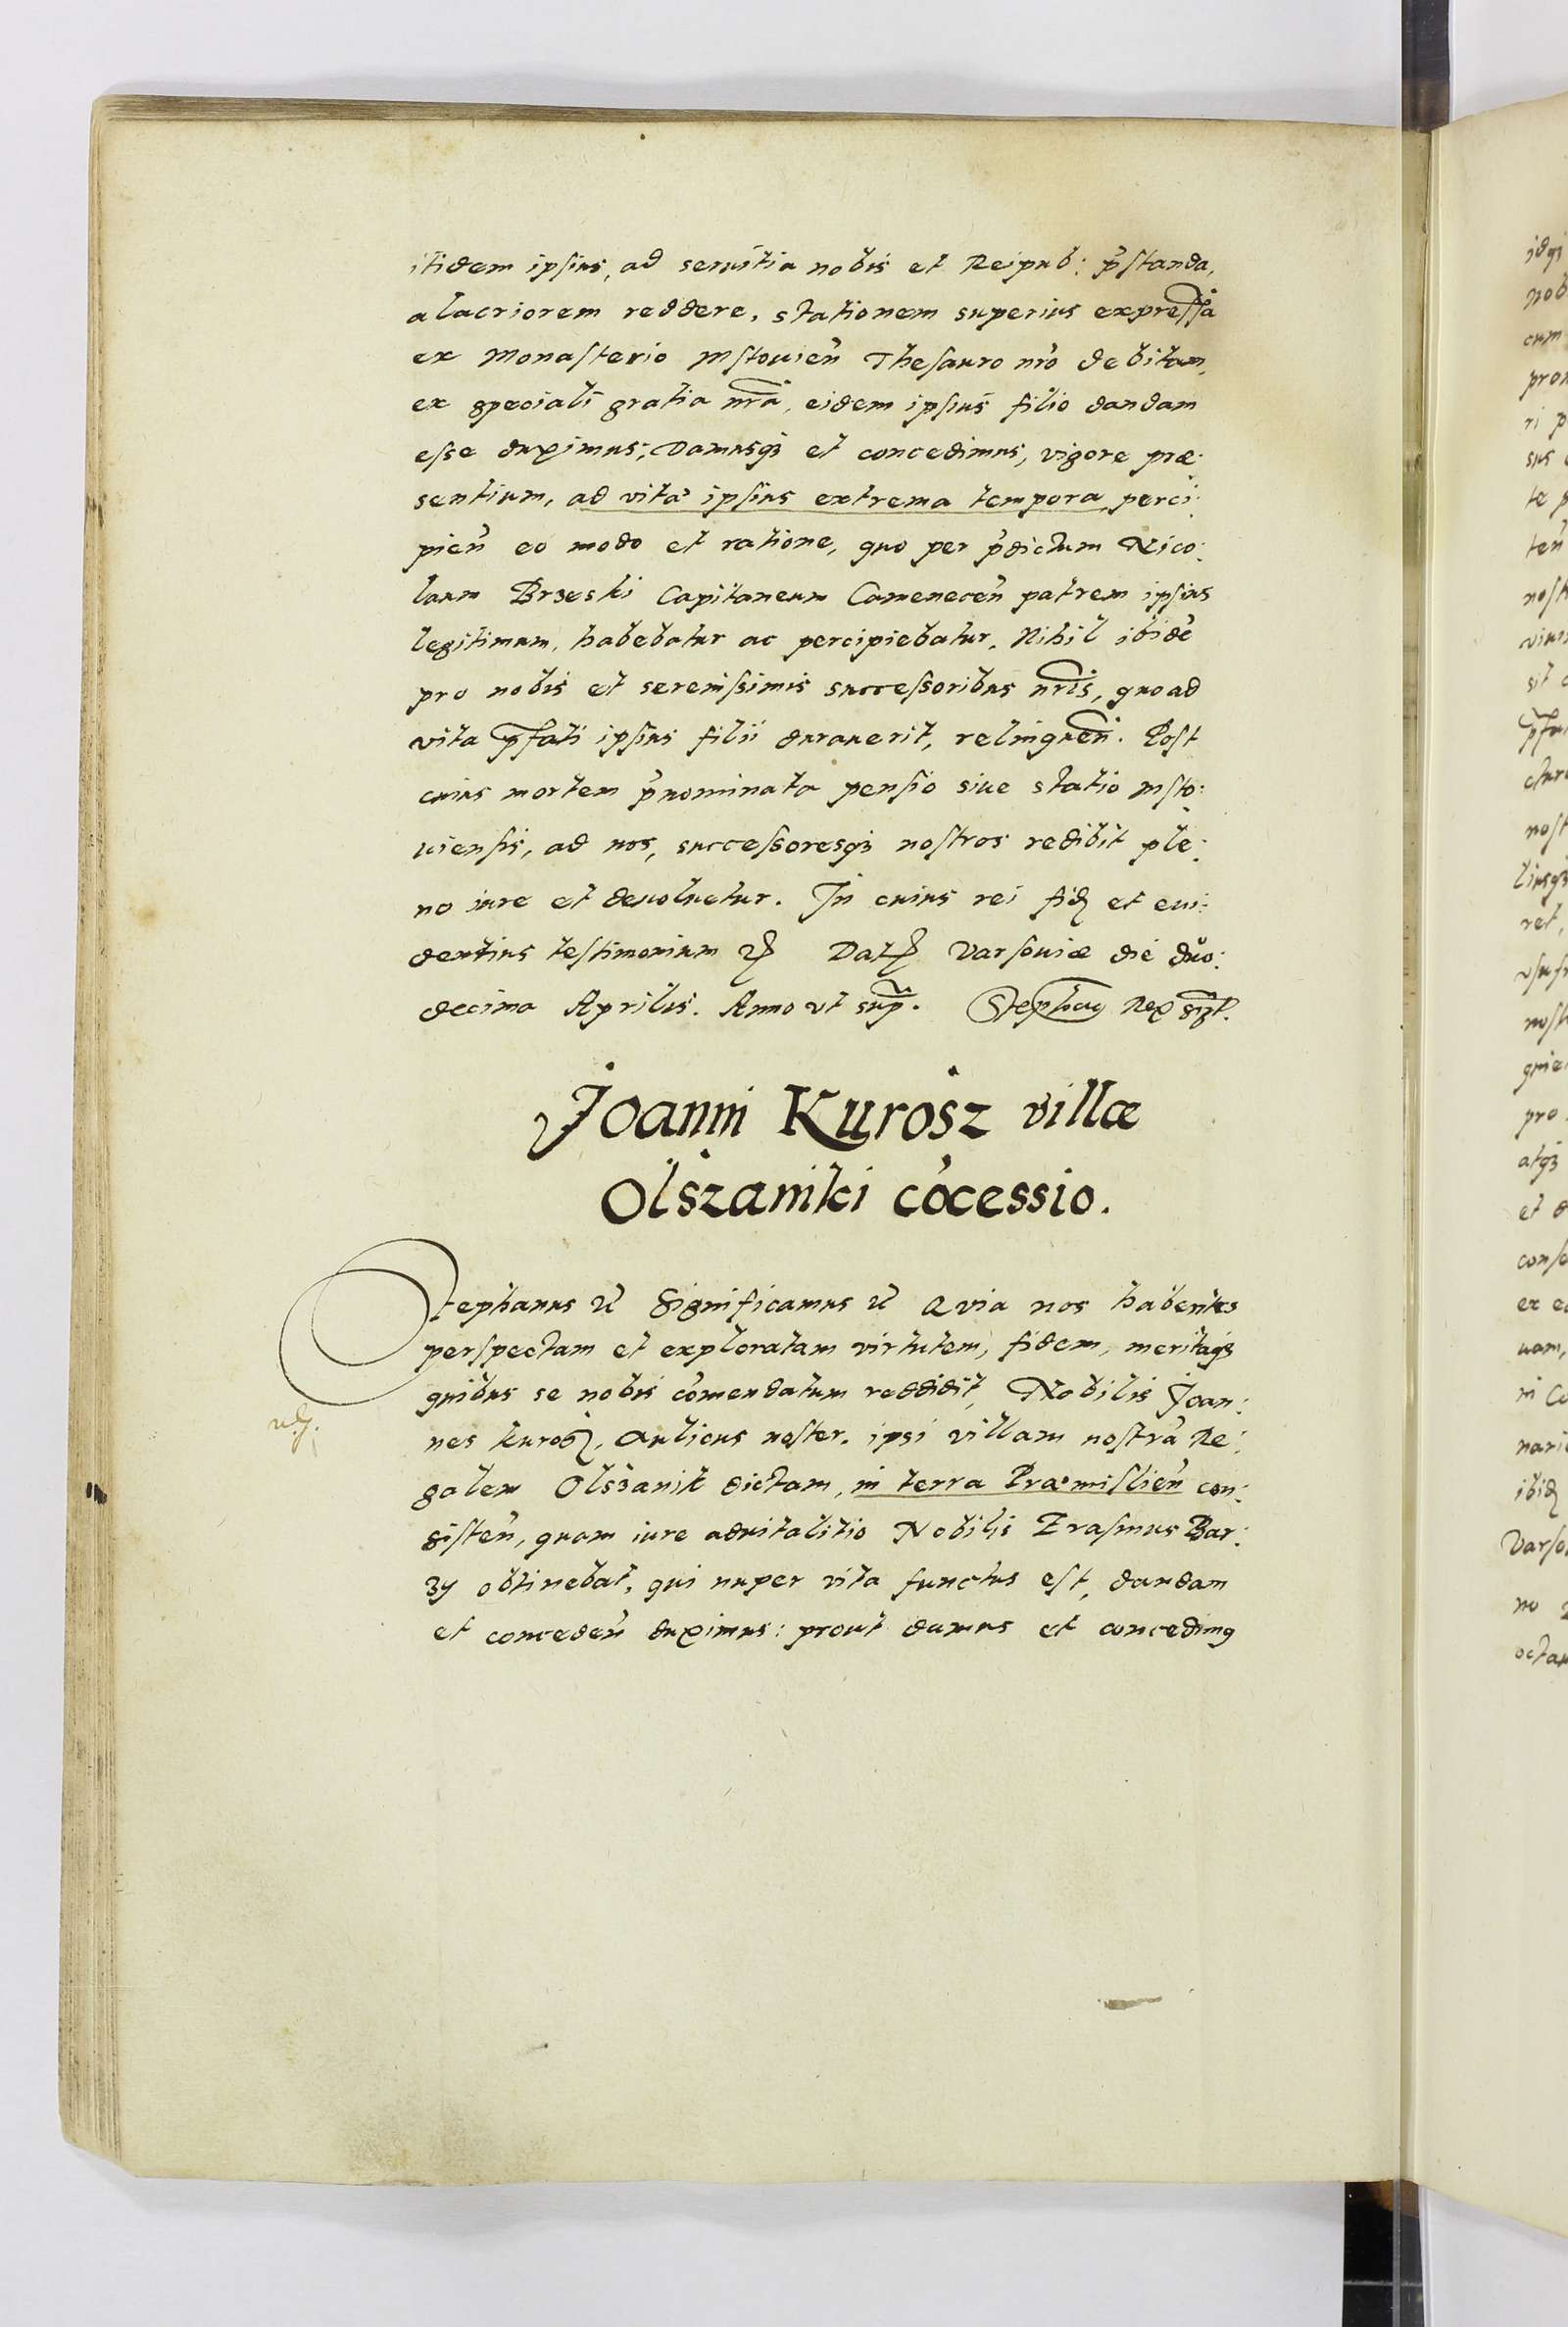 itidem ipsius, ad seruitia nobis et Reipub: p̃standa,
alacriorem reddere, stationem superius expressã
ex Monasterio Mstouieñ Thesauro nrõ debitam,
ex speciali gratia nrã, eidem ipsius filio dandam
esse duximus; Damusq3 et concedimus, vigore præ:
sentium, ad vitæ ipsius extrema tempora, perci:
pieñ eo modo et ratione, quo per p̃dictum Nico:
laum Brzeski Capitaneum Cameneceñ patrem ipsius
legitimum, habebatur ac percipiebatur, Nihil ibidẽ
pro nobis et serenissimis successoribus nrĩs, quoad
vita p̃fati ipsius filii durauerit, relinqueñ. Post
cuius mortem p̃nominata pensio siue statio Msto:
uiensis, ad nos, successoresq3 nostros redibit ple:
no iure et deuoluetur. In cuius rei fid et eui:
dentius testimonium Dat Varsouiæ die duo:
decima Aprilis. Anno vt sup̃. Stephanus Rex sszt.
Joanni Kurosz villæ
Olszaniki cõcessio.
Stephanus Significamus Quia nos habentes
perspectam et exploratam virtutem, fidem, meritaq3
quibus se nobis cõmendatum reddidit, Nobilis Joan:
nes Kurosz, Aulicus noster, ipsi villam nostrã Re:
galem Olszanik dictam, in terra Præmislieñ con:
sisteñ, quam iure aduitalitio Nobilis Erasmus Bar:
zy obtinebat, qui nuper vita functus est, dandam
et concedeñ duximus: prout damus et concedimus
idq3
nob
cum
ri p
sus
te p
teñ
nost
sit
nost
ret,
nost
pro
atq3
et
conse
ex
uam,
in
ibid
Varso
no
octau